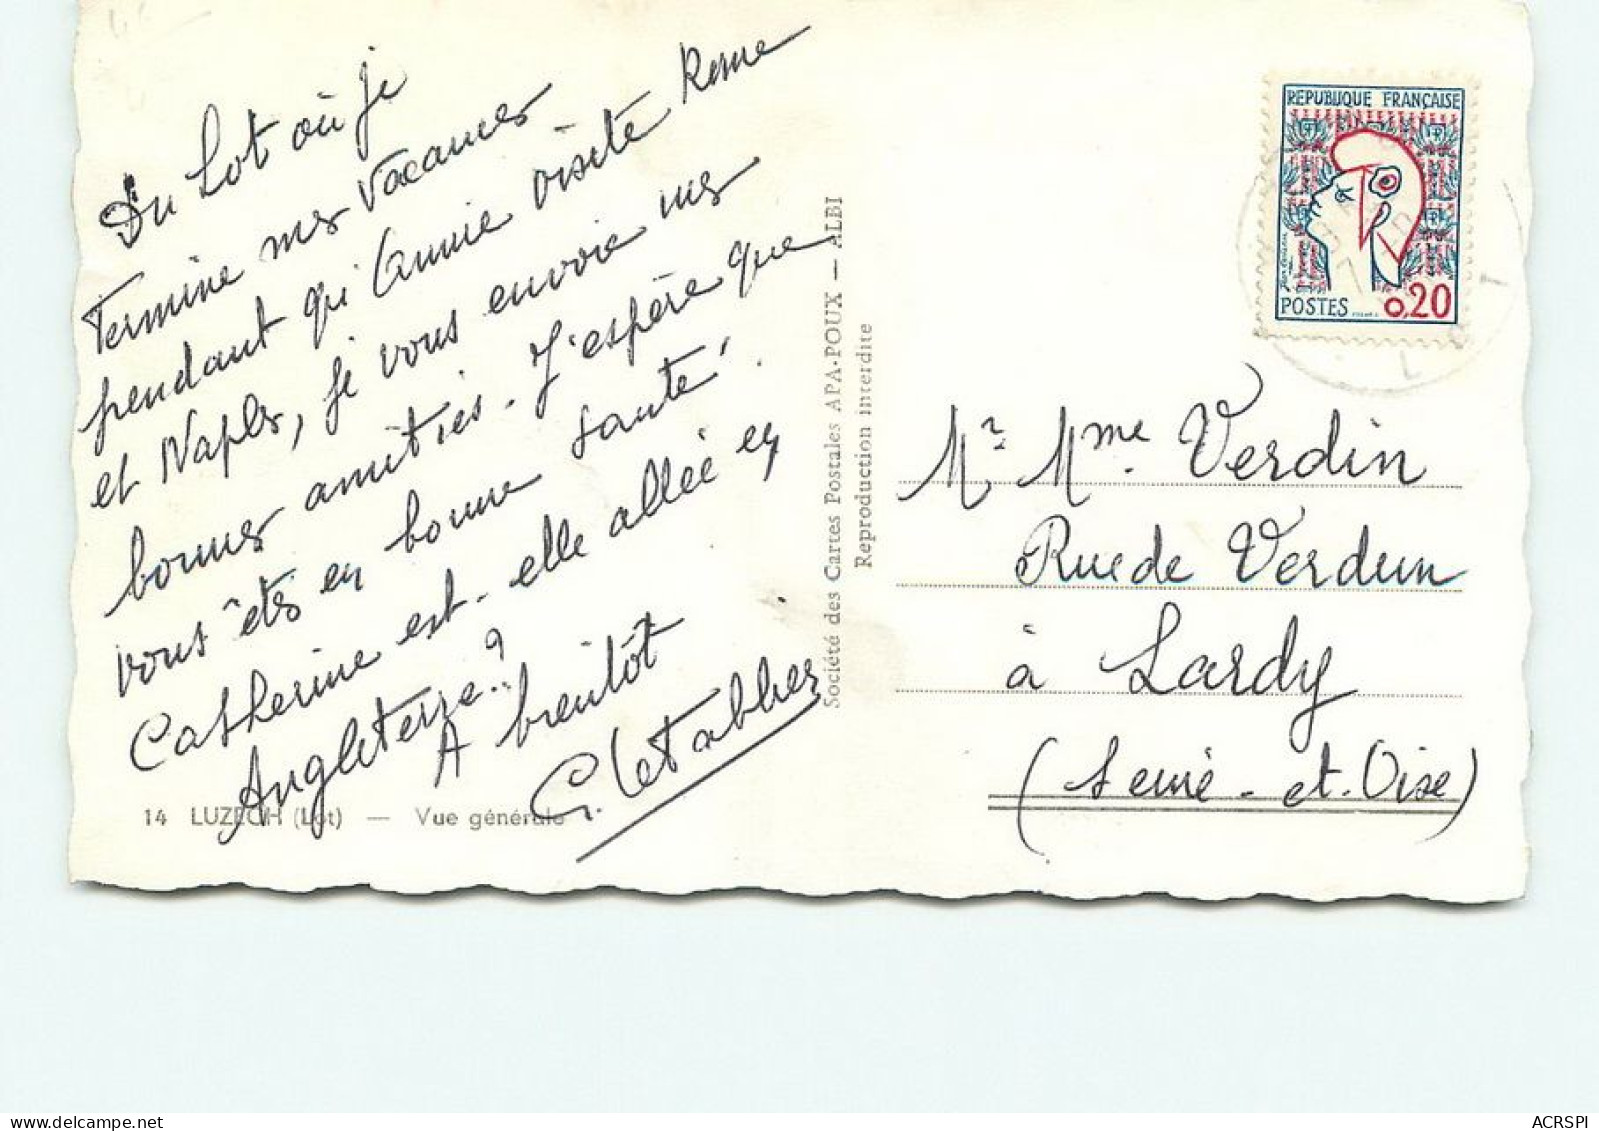 Du Lot où je
termine mes vacances
pendant qu'Annie visite Rome
et Naples, je vous envoie mes
bonnes amitiés. J'espère que
vous êtes en bonne santé.
Catherine est-elle allée en
Angleterre ?
A bientôt
14 LUZECH (Lot) — Vue générale
Société des Cartes Postales APA-POUX — ALBI
Reproduction interdite
REPUBLIQUE FRANÇAISE
POSTES 0,20
Mr Mme Verdin
Rue de Verdun
à Lardy
(Seine-et-Oise)
ACRSPI